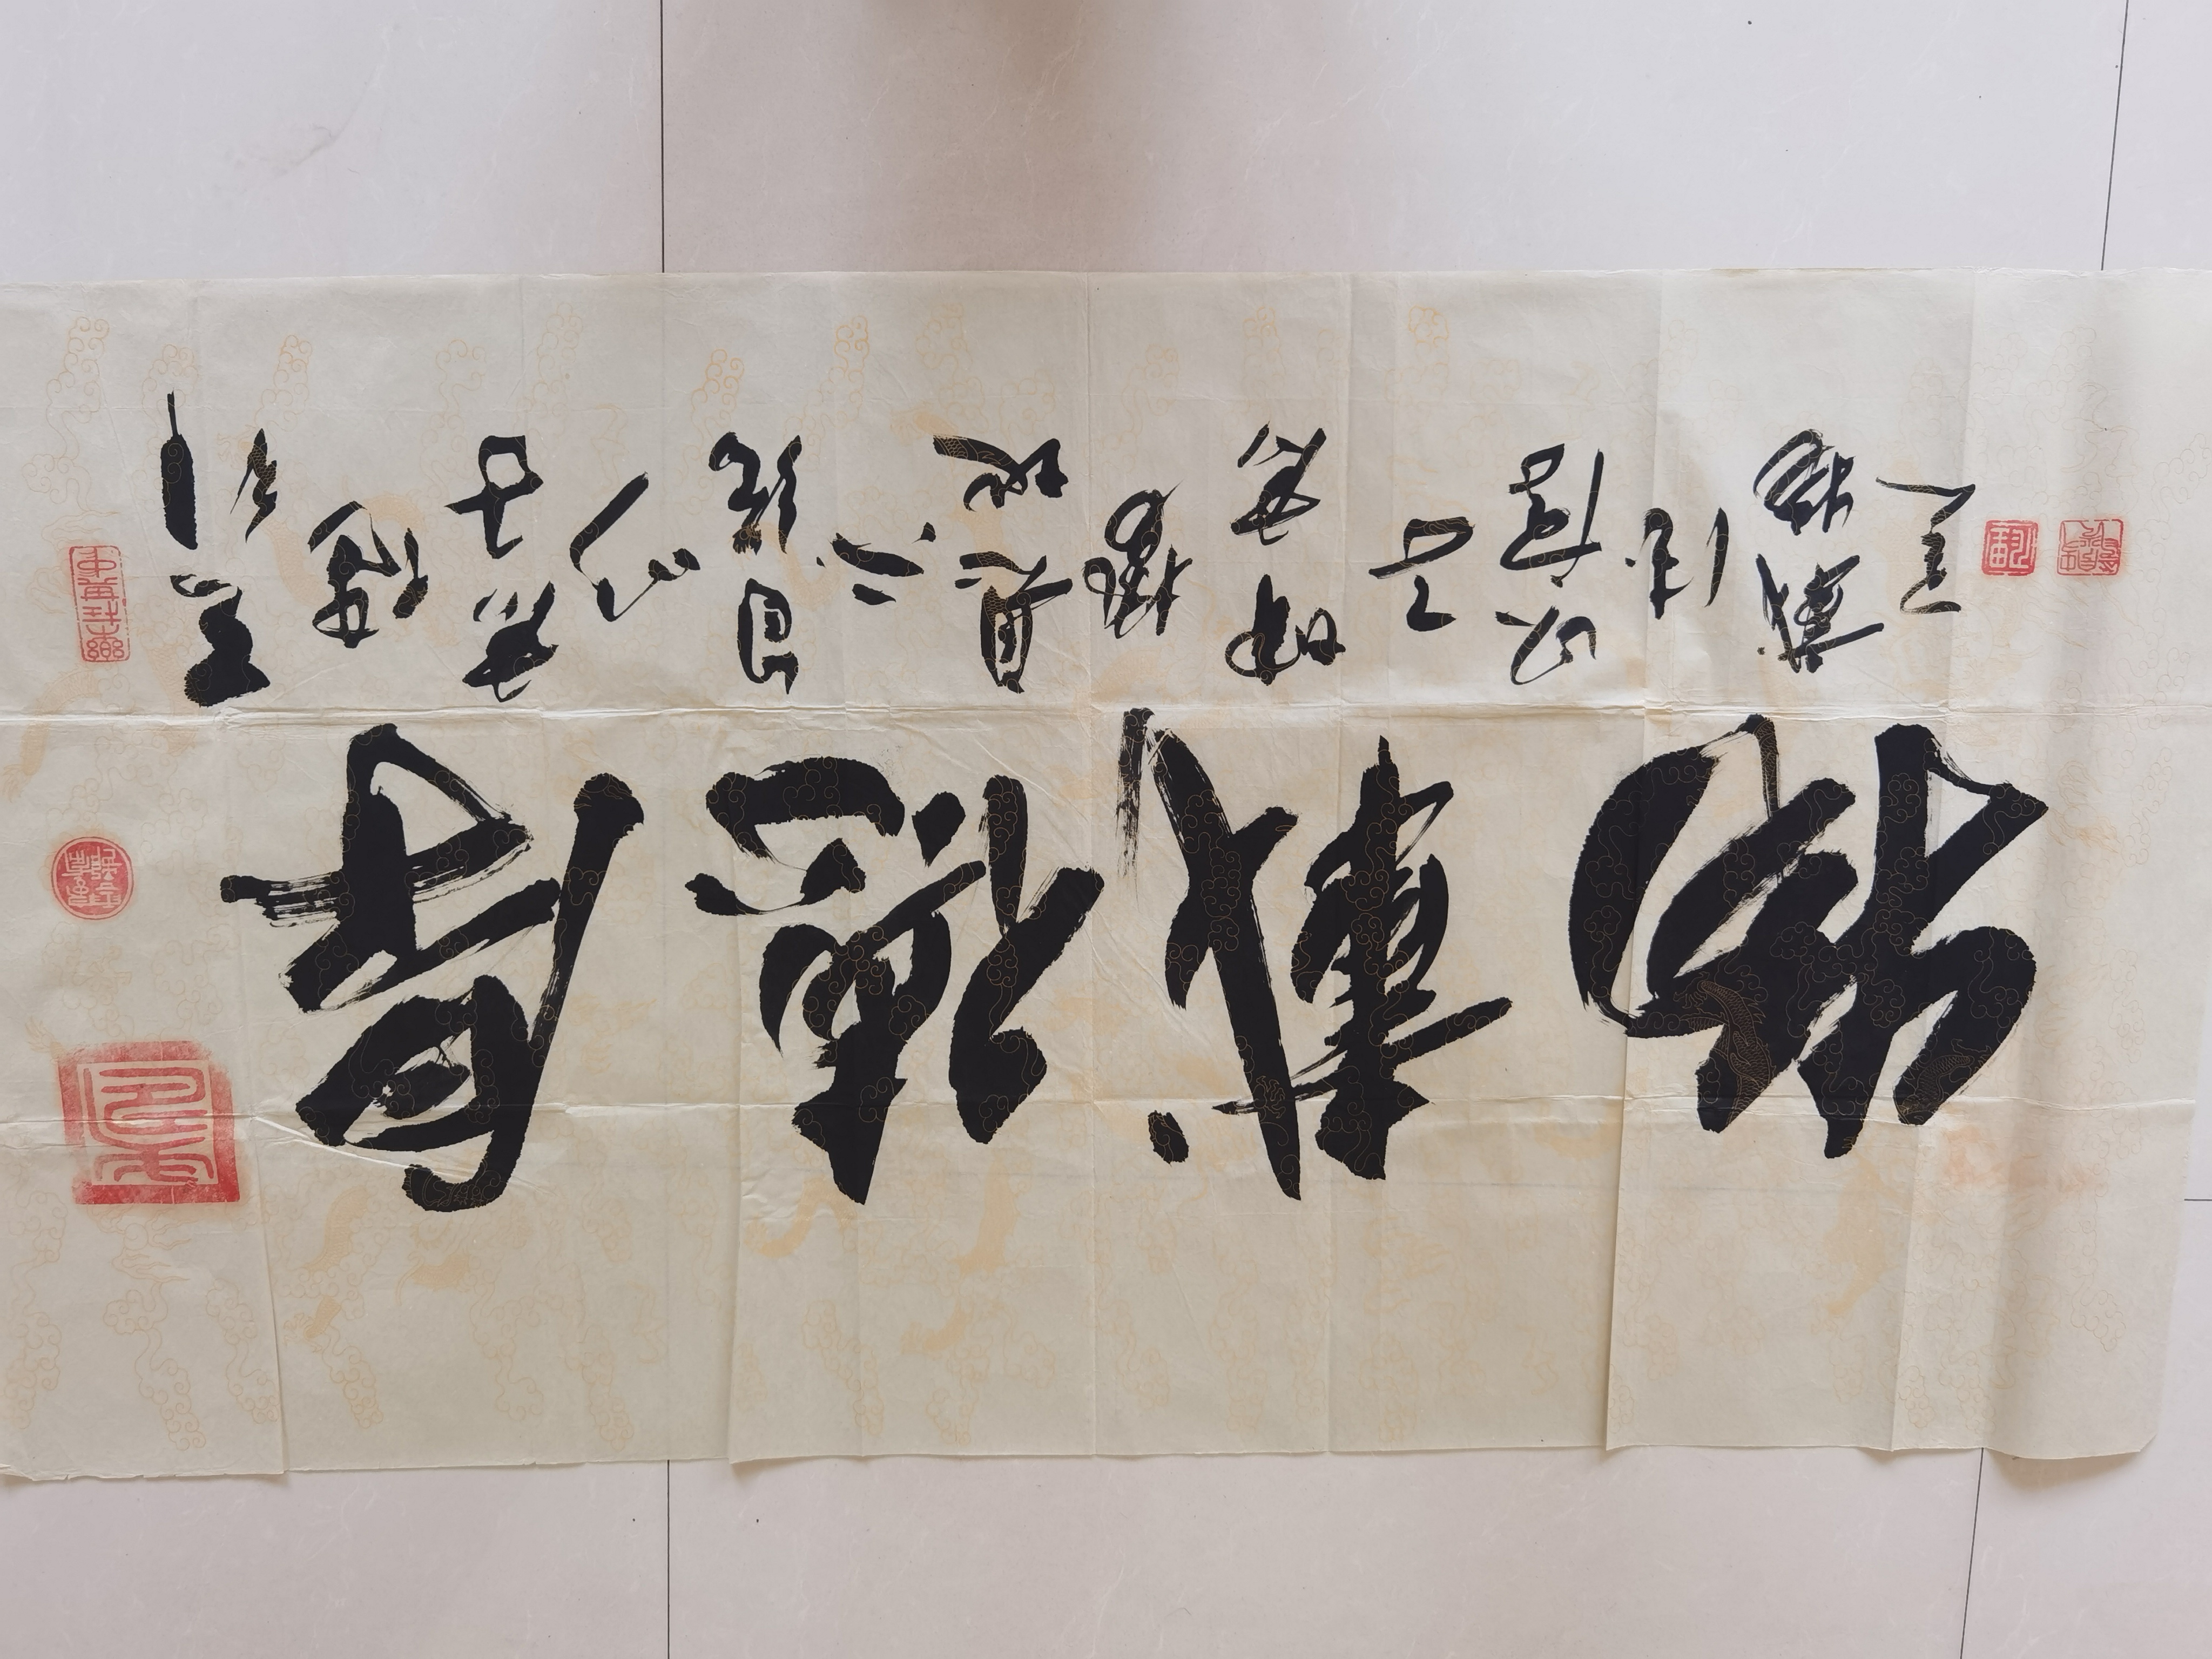 厚德載物
天行健君子以自强不息地勢坤君子以厚德載物
樂在其中